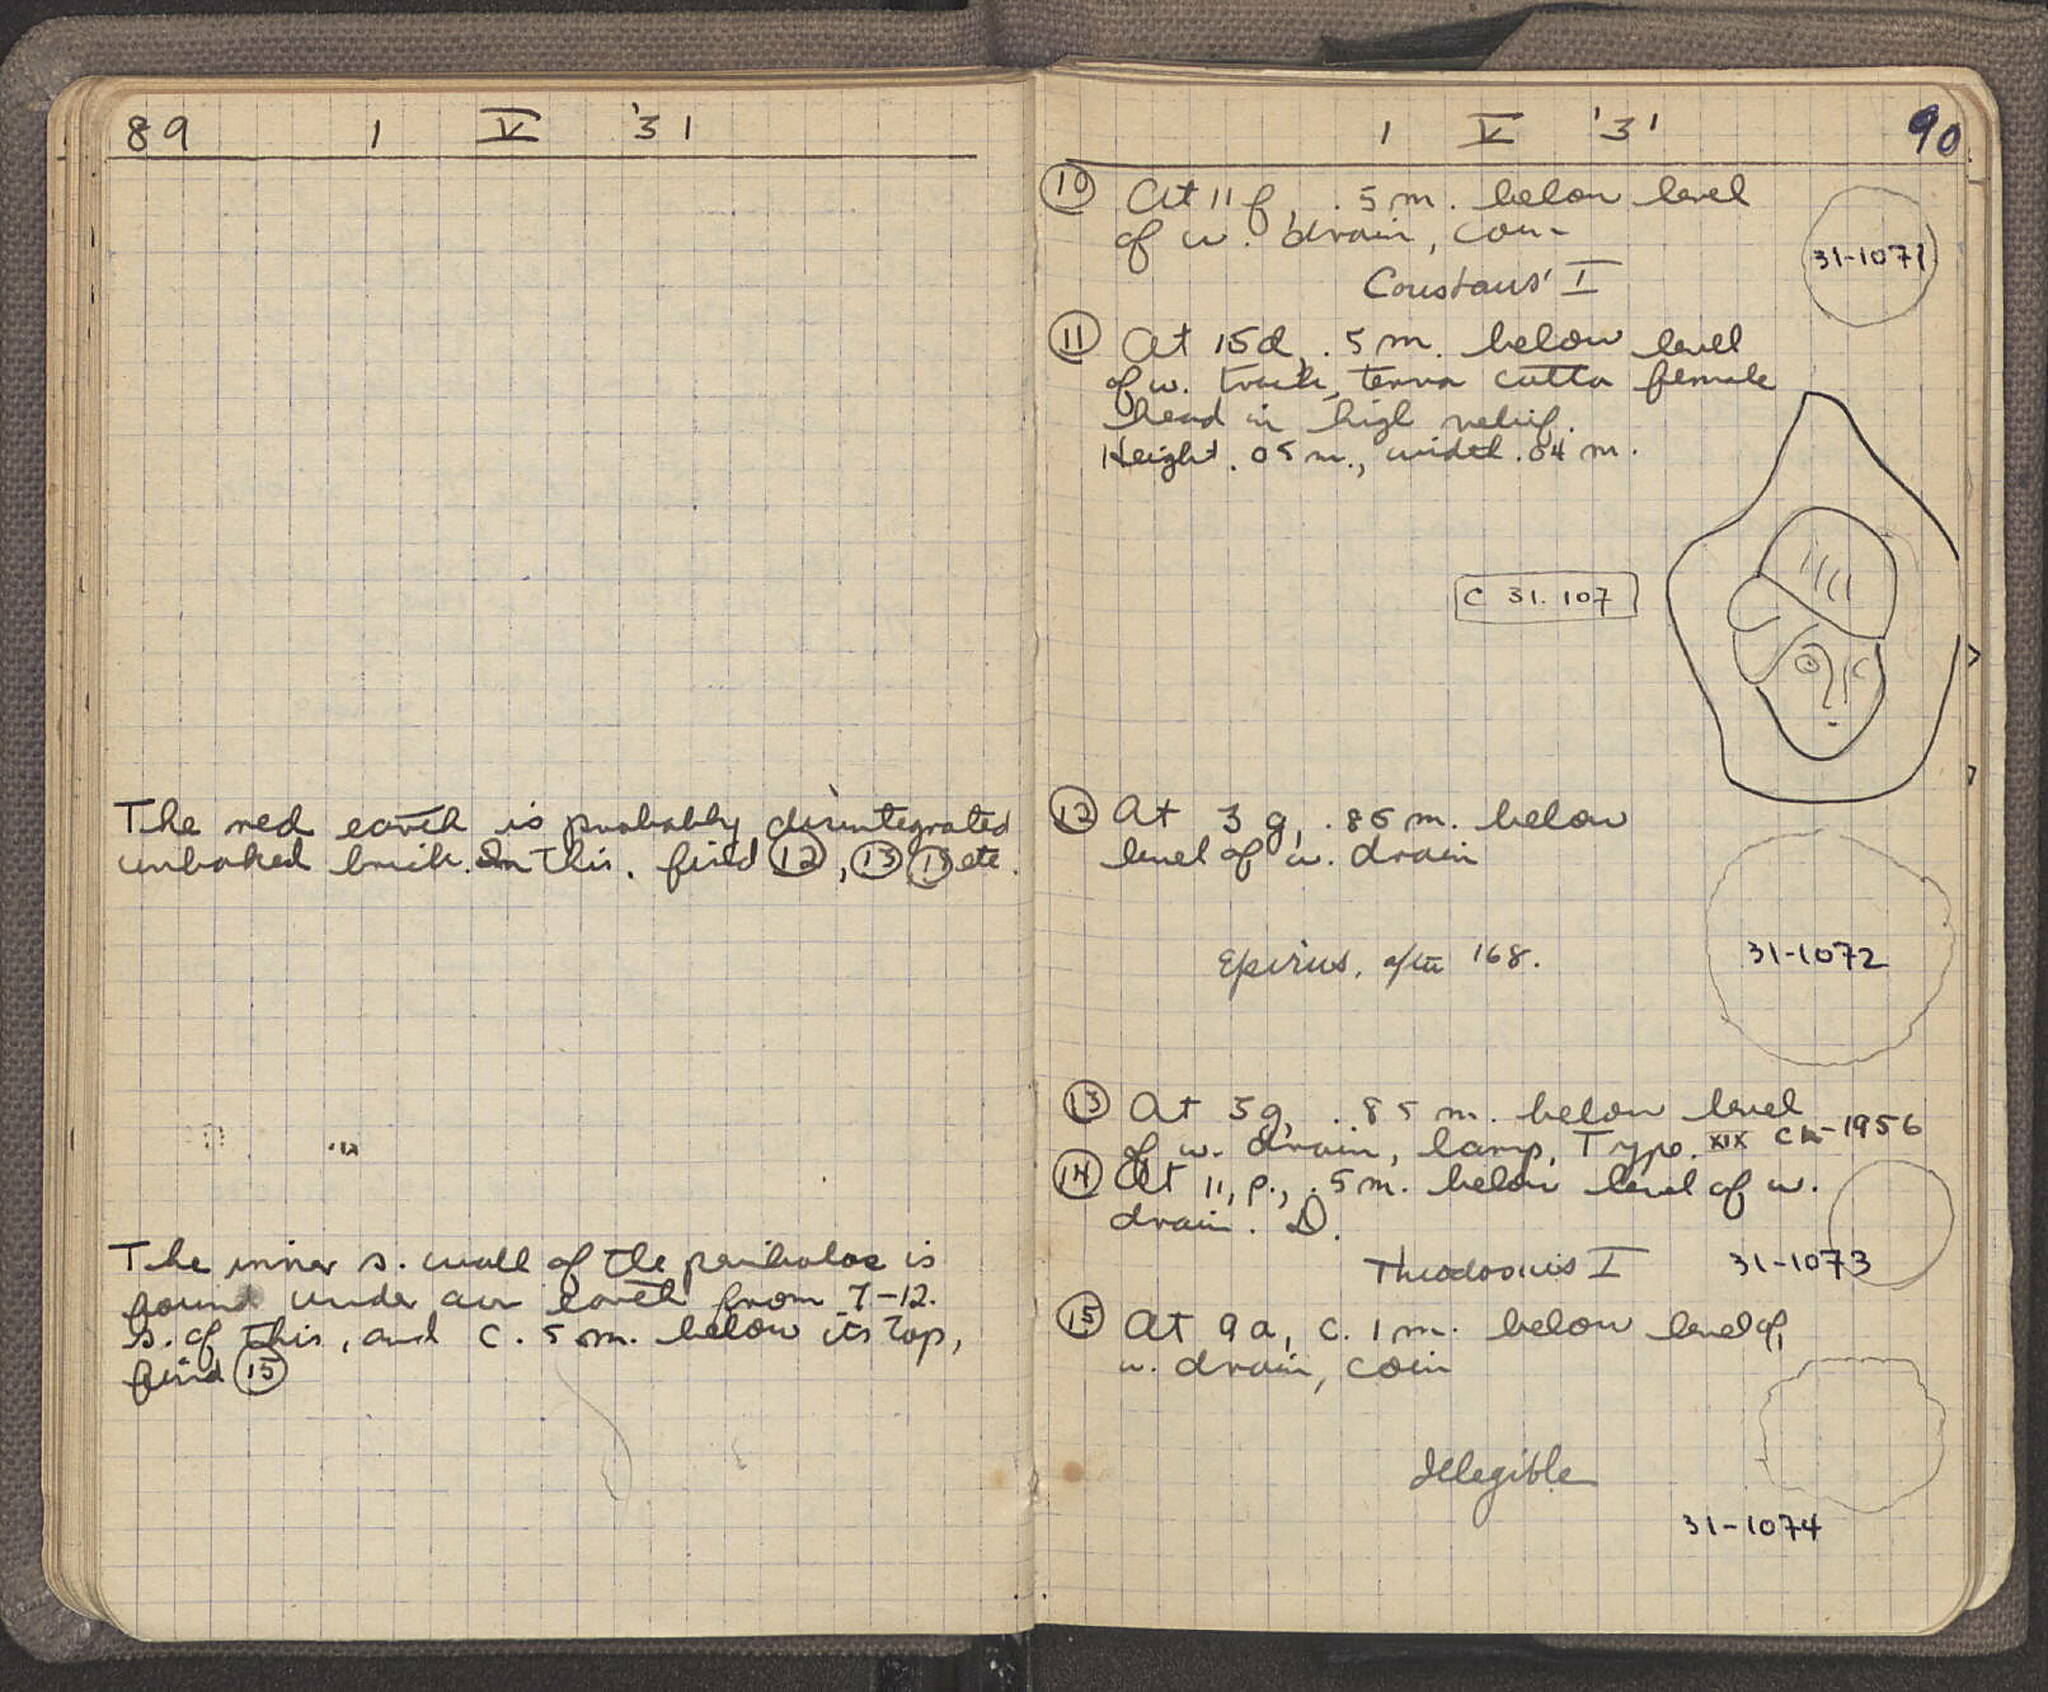 89 1 V '31
The red earth is probably disintegrated
unbaked brick. In this, find (12), (13) etc.
The inner s. wall of the peribolos is
found under earth from 7-12.
S. of this, and c. 5 m. below its top,
find (15)
1 V '31 90
(10) At 11 f, .5 m. below level
of w. drain, coin
31-1071
Constans I
(11) At 15d, .5 m. below level
of w. terra cotta female
head in high relief.
Height .05 m., width .04 m.
C 31.107
(12) At 3 g, .85 m. below
level of w. drain
Epirus, after 168.
31-1072
(13) At 3g, .85 m. below level
of w. drain, lamp, Type XIX CL-1956
(14) At 11, p., .5 m. below level of w.
drain. D.
Theodosius I 31-1073
(15) At 9a, c. 1 m. below level of
w. drain, coin
Illegible
31-1074